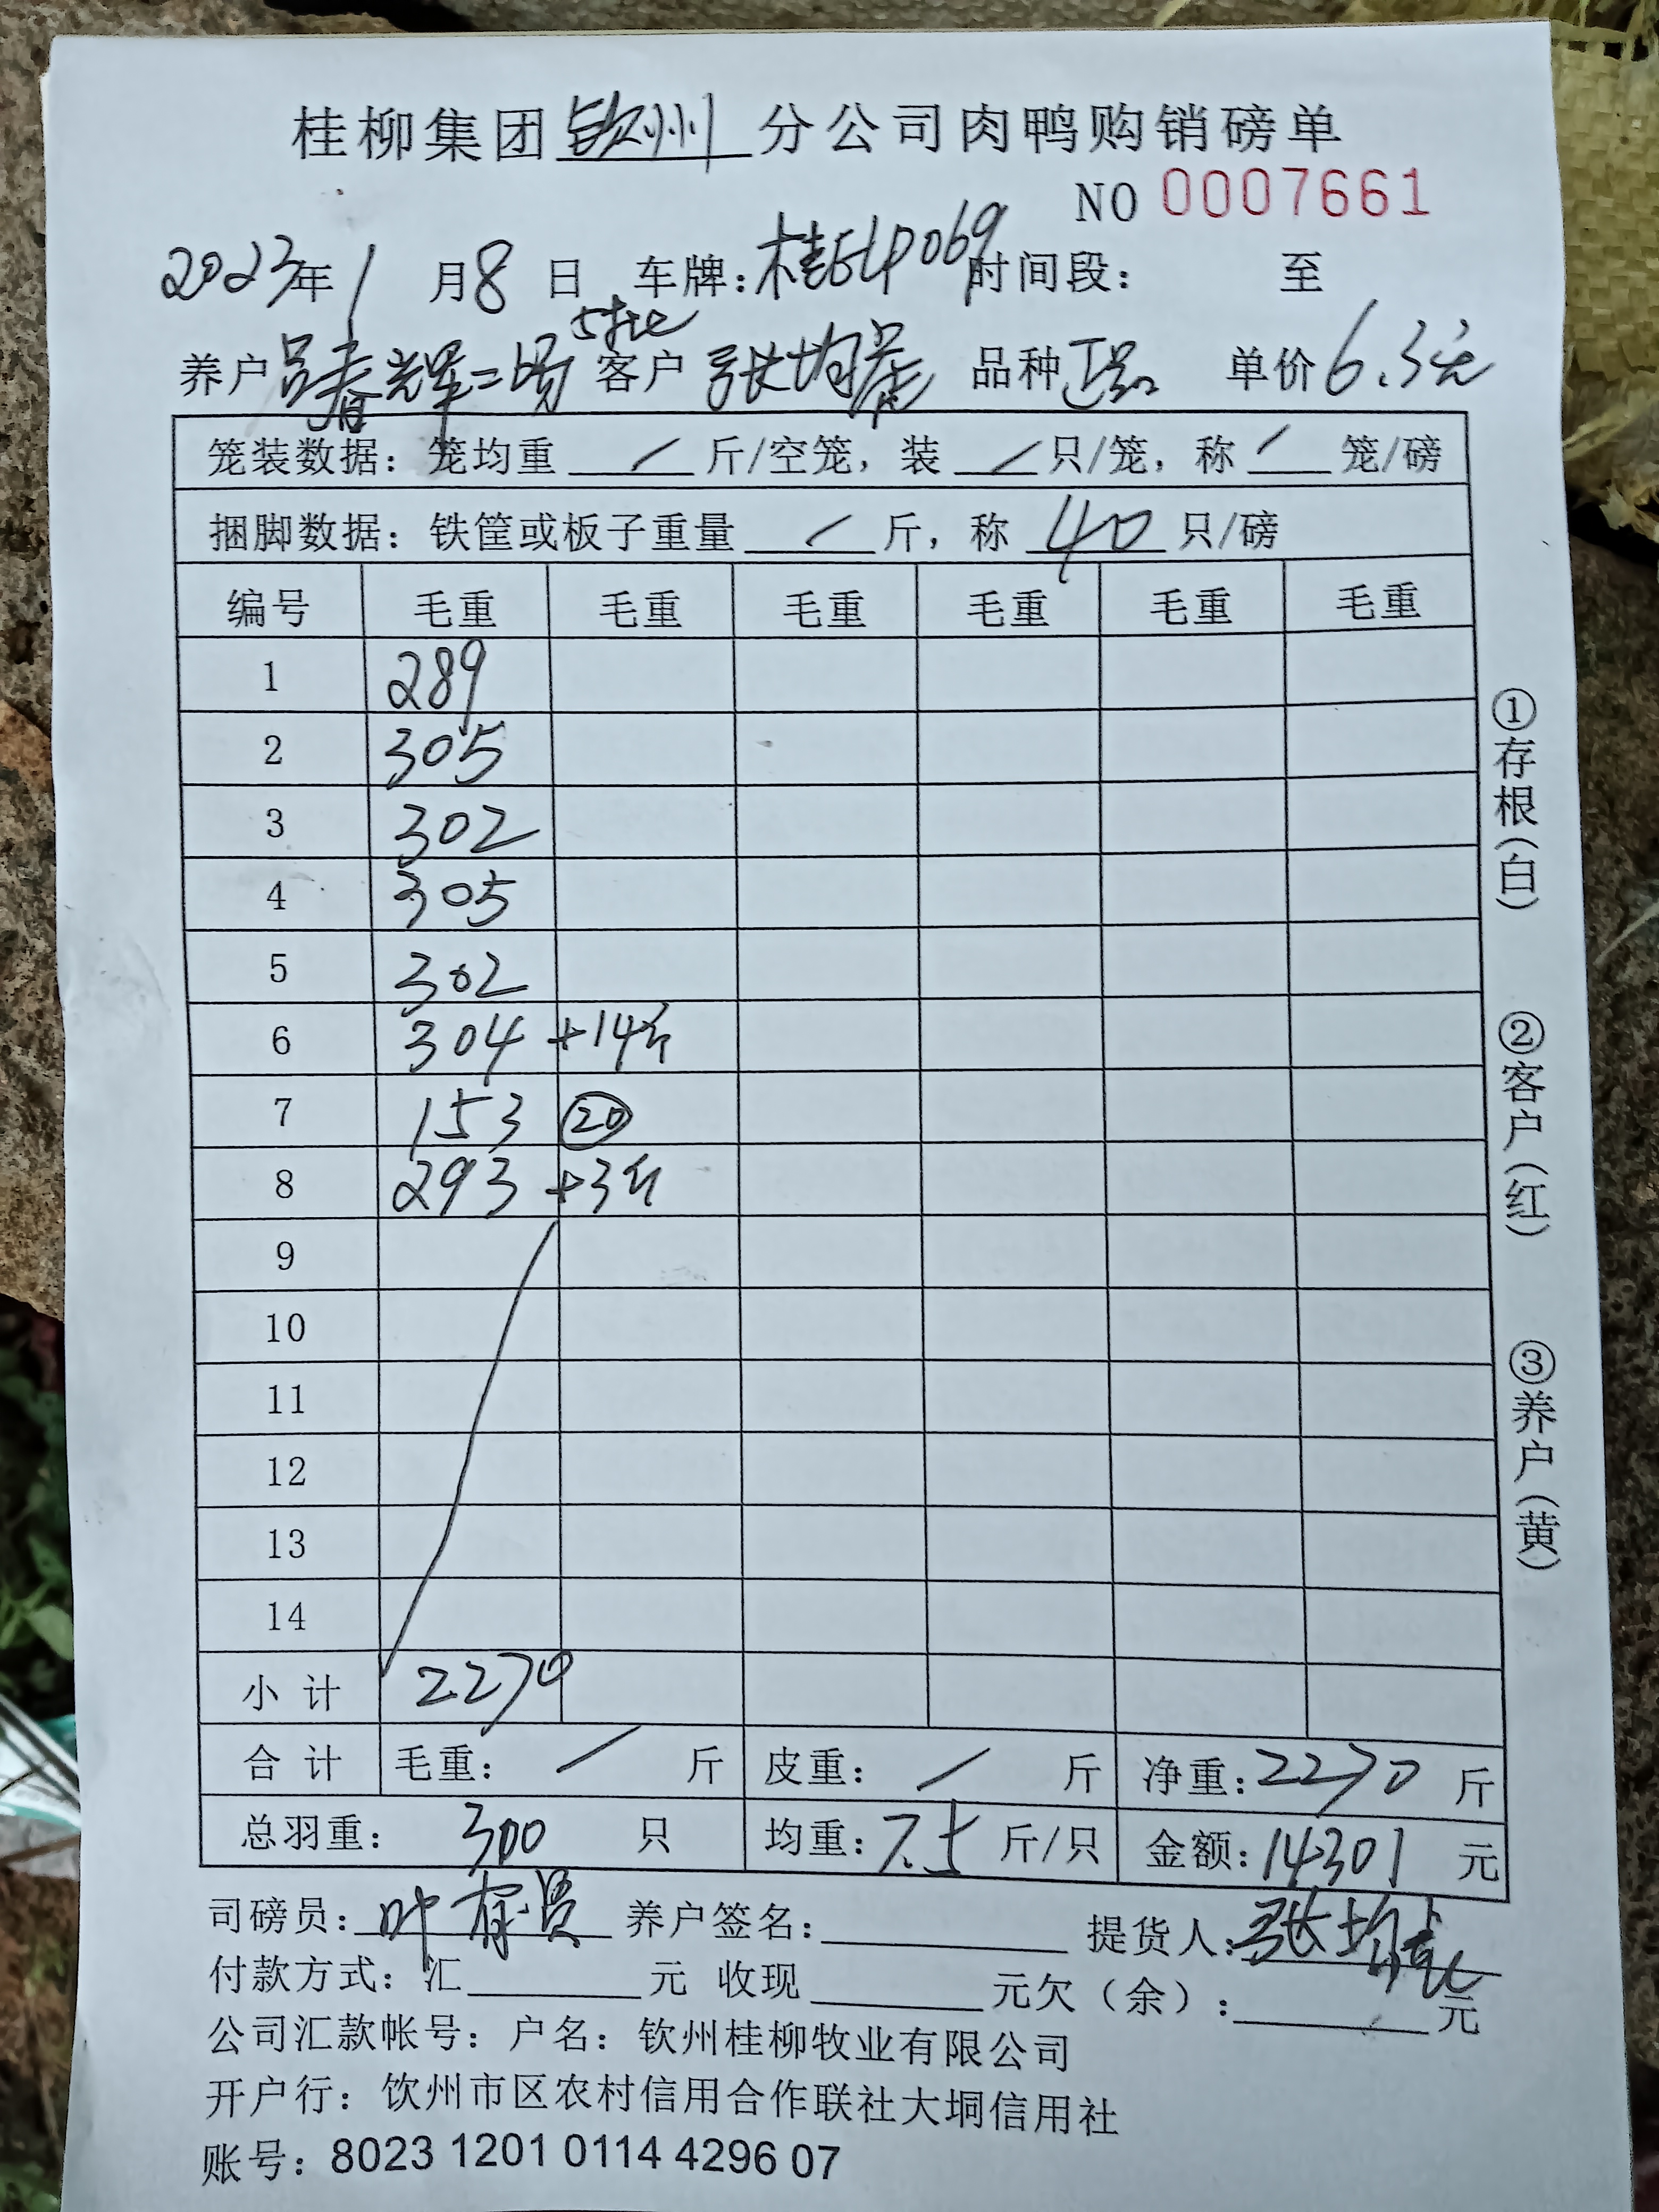 桂柳集团 钦州 分公司肉鸭购销磅单
NO 0007661
2023年 1 月 8 日 车牌: 时间段: 至
5批
养户 吕春辉二场 客户 张均 品种 正品 单价 6.3元
笼装数据: 笼均重 / 斤/空笼, 装 / 只/笼, 称 / 笼/磅
捆脚数据: 铁筐或板子重量 / 斤, 称 40 只/磅
编号 毛重 毛重 毛重 毛重 毛重 毛重
1 289
2 305
3 302
4 305
5 302
6 304 +14斤
7 153 ⑳
8 293 +3斤
9
10
11
12
13
14
小计 2270
合计 毛重: / 斤 皮重: / 斤 净重: 2270 斤
总羽重: 300 只 均重: 7.5 斤/只 金额: 14301 元
司磅员: 叶 养户签名: 提货人: 张均
付款方式: 汇 元 收现 元欠(余): 元
公司汇款帐号: 户名: 钦州桂柳牧业有限公司
开户行: 钦州市区农村信用合作联社大垌信用社
账号: 8023 1201 0114 4296 07
①存根(白)
②客户(红)
③养户(黄)